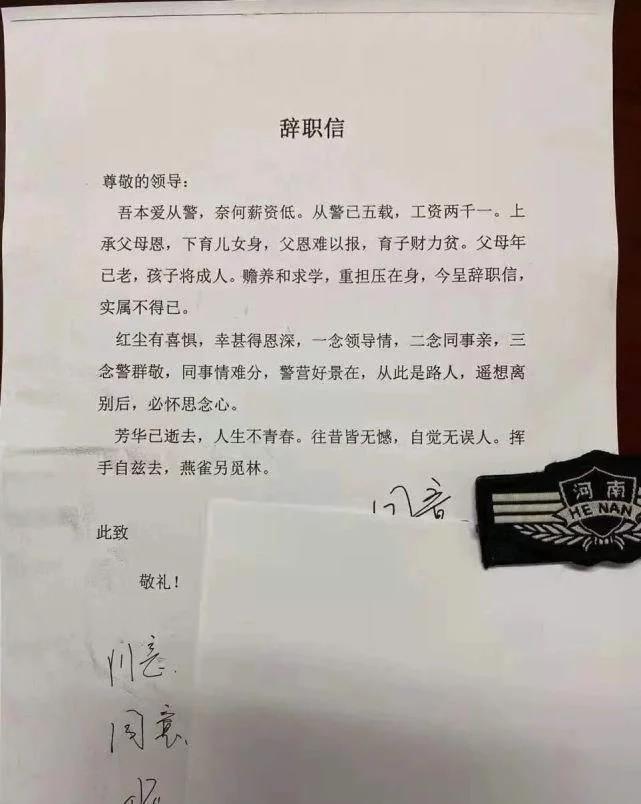 辞职信
尊敬的领导：
吾本爱从警，奈何薪资低。从警已五载，工资两千一。上
承父母恩，下育儿女身，父恩难以报，育子财力贫。父母年
已老，孩子将成人。赡养和求学，重担压在身，今呈辞职信，
实属不得已。
红尘有喜惧，幸甚得恩深，一念领导情，二念同事亲，三
念警群敬，同事情难分，警营好景在，从此是路人，遥想离
别后，必怀思念心。
芳华已逝去，人生不青春。往昔皆无憾，自觉无误人。挥
手自兹去，燕雀另觅林。
同意
河南
HE NAN
此致
敬礼！
同意
同意